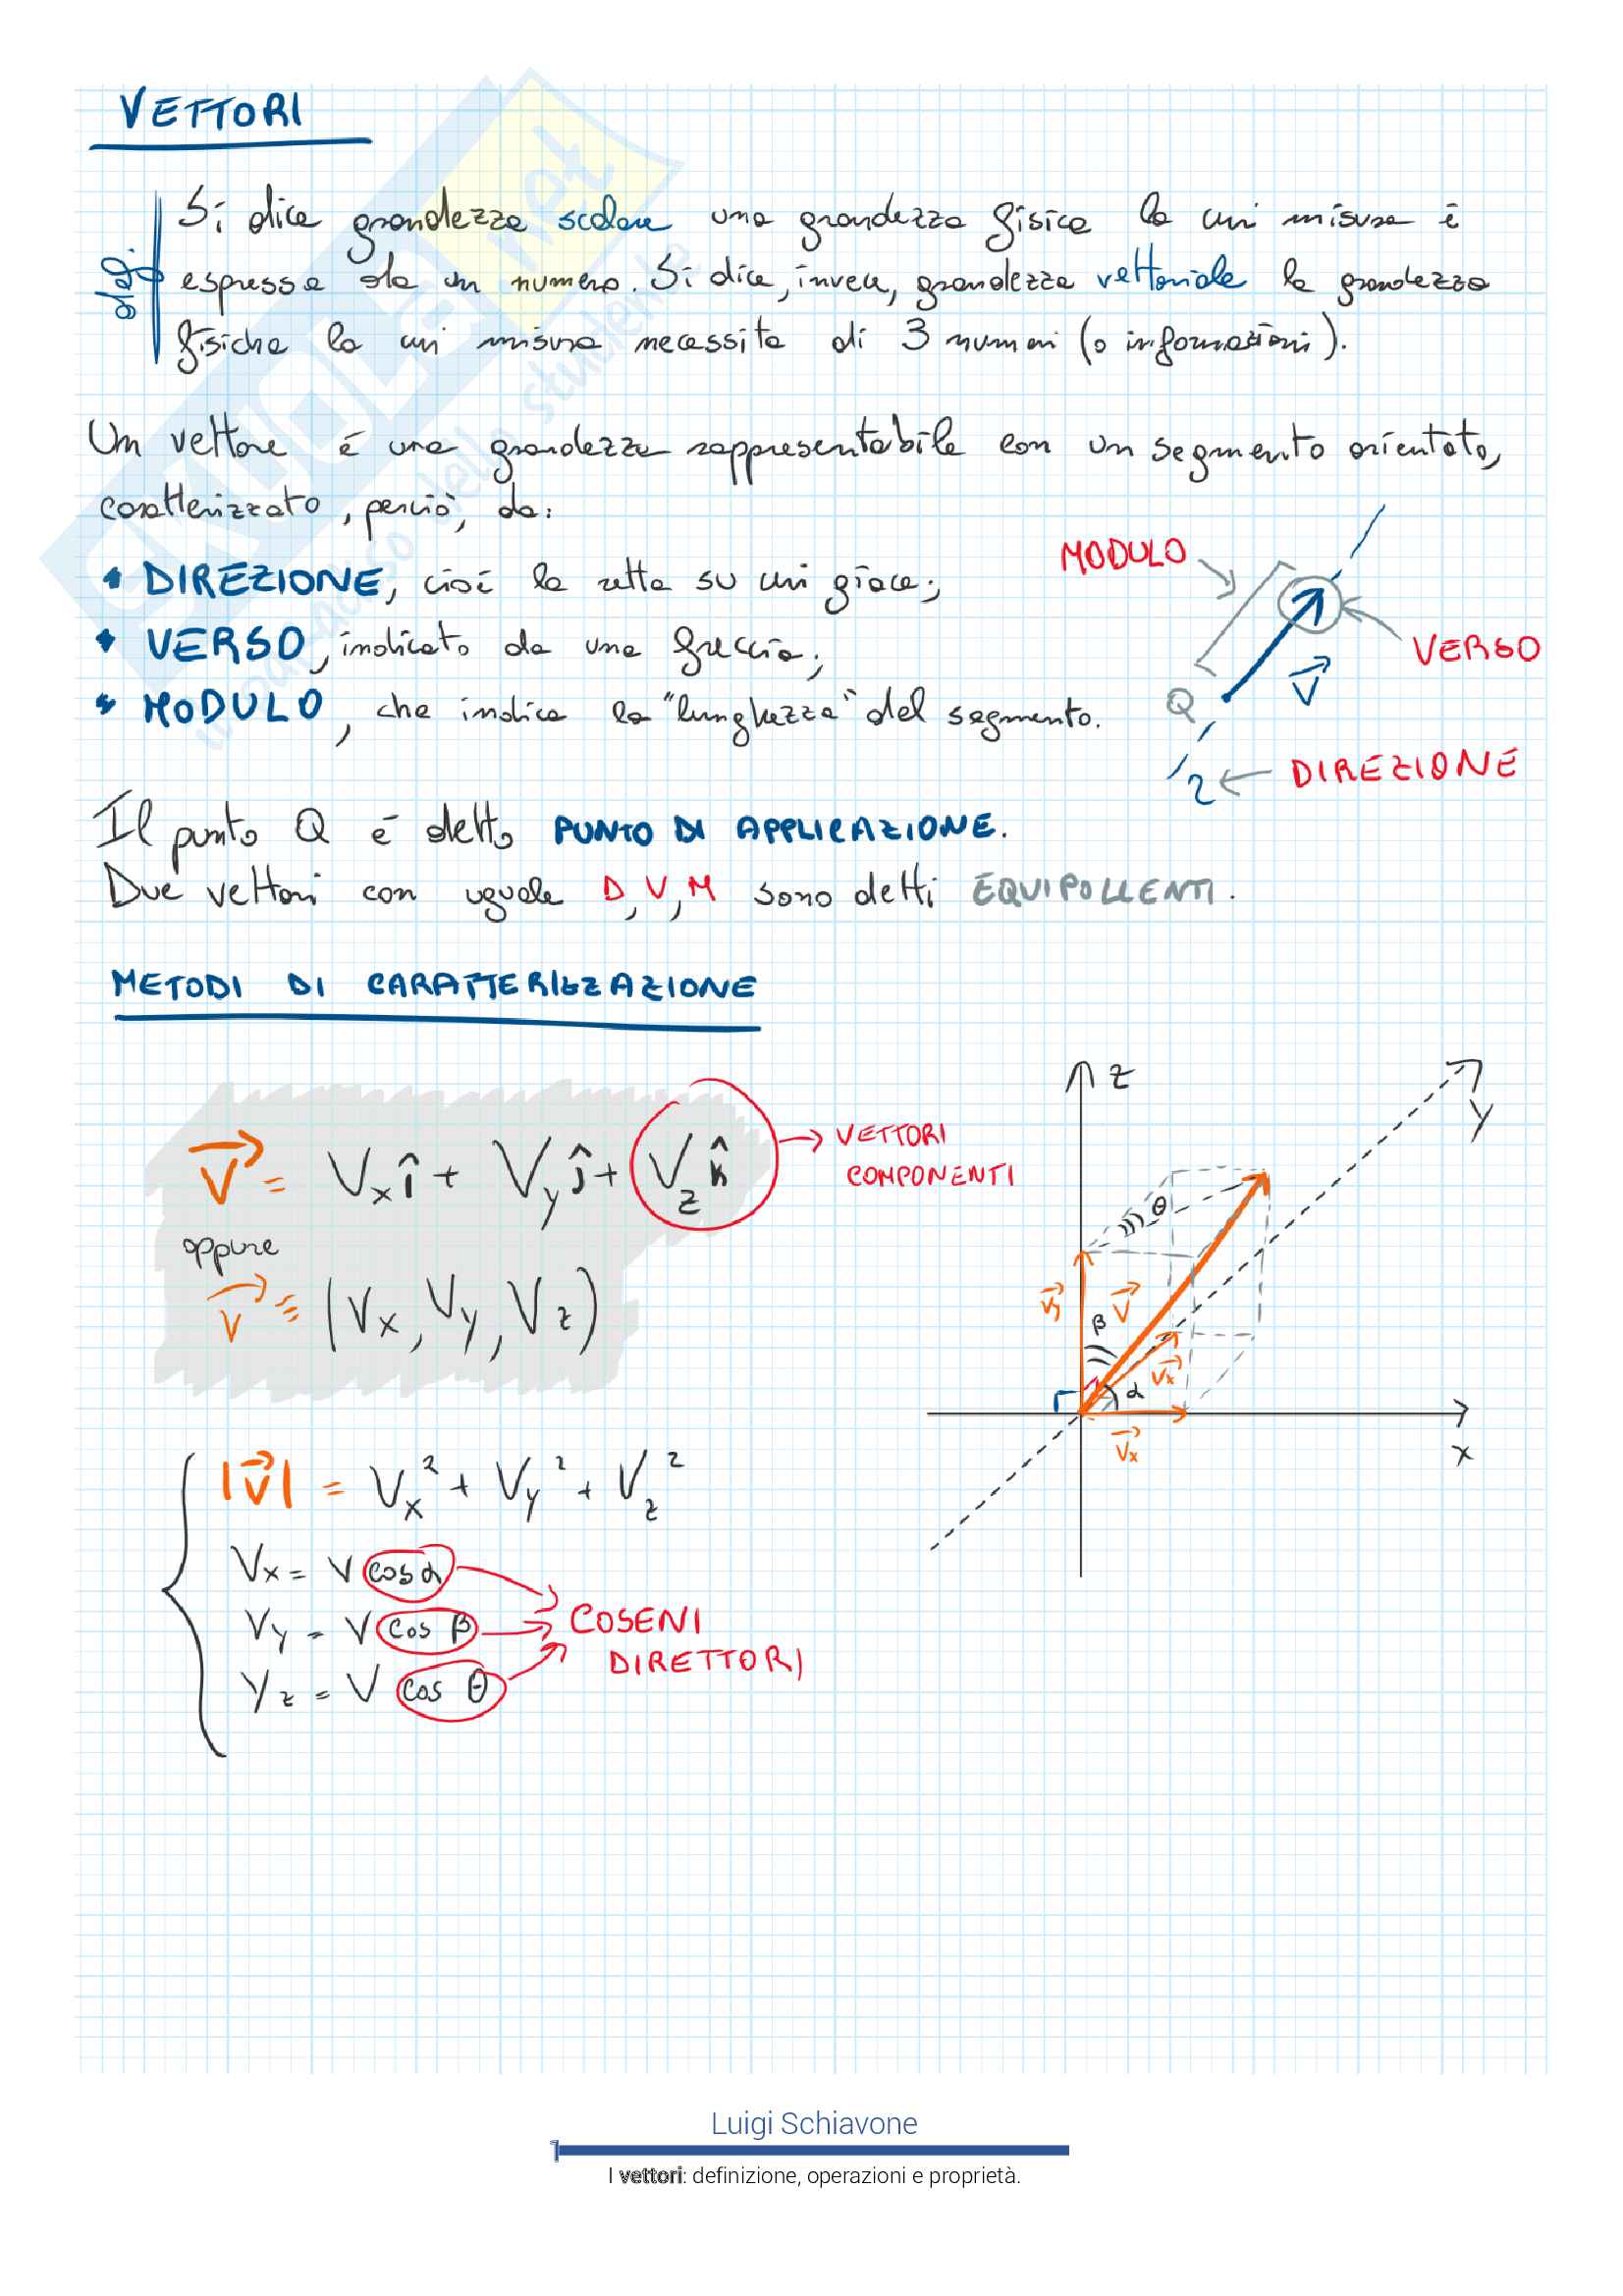 VETTORI
def.
Si dice grandezza scalare una grandezza fisica la cui misura è
espressa da un numero. Si dice, invece, grandezza vettoriale la grandezza
fisiche la cui misura necessita di 3 numeri (o informazioni).
Un vettore è una grandezza rappresentabile con un segmento orientato,
caratterizzato, perciò, da:
DIREZIONE, cioè la retta su cui giace;
VERSO, indicato da una freccia;
MODULO, che indica la "lunghezza" del segmento.
MODULO
VERSO
V⃗
Q
r
DIREZIONE
Il punto Q è detto PUNTO DI APPLICAZIONE.
Due vettori con uguale D, V, M sono detti EQUIPOLLENTI.
METODI DI CARATTERIZZAZIONE
V⃗ = Vx î + Vy ĵ + Vz k̂
VETTORI
COMPONENTI
oppure
V⃗ ≡ (Vx, Vy, Vz)
|V⃗| = Vx² + Vy² + Vz²
Vx = V cos α
Vy = V cos β
Yz = V cos θ
COSENI
DIRETTORI
z
y
θ
V⃗
β
V⃗x
α
V⃗x
x
SKUOLA.net
il paradiso dello studente
Luigi Schiavone
1
I vettori: definizione, operazioni e proprietà.